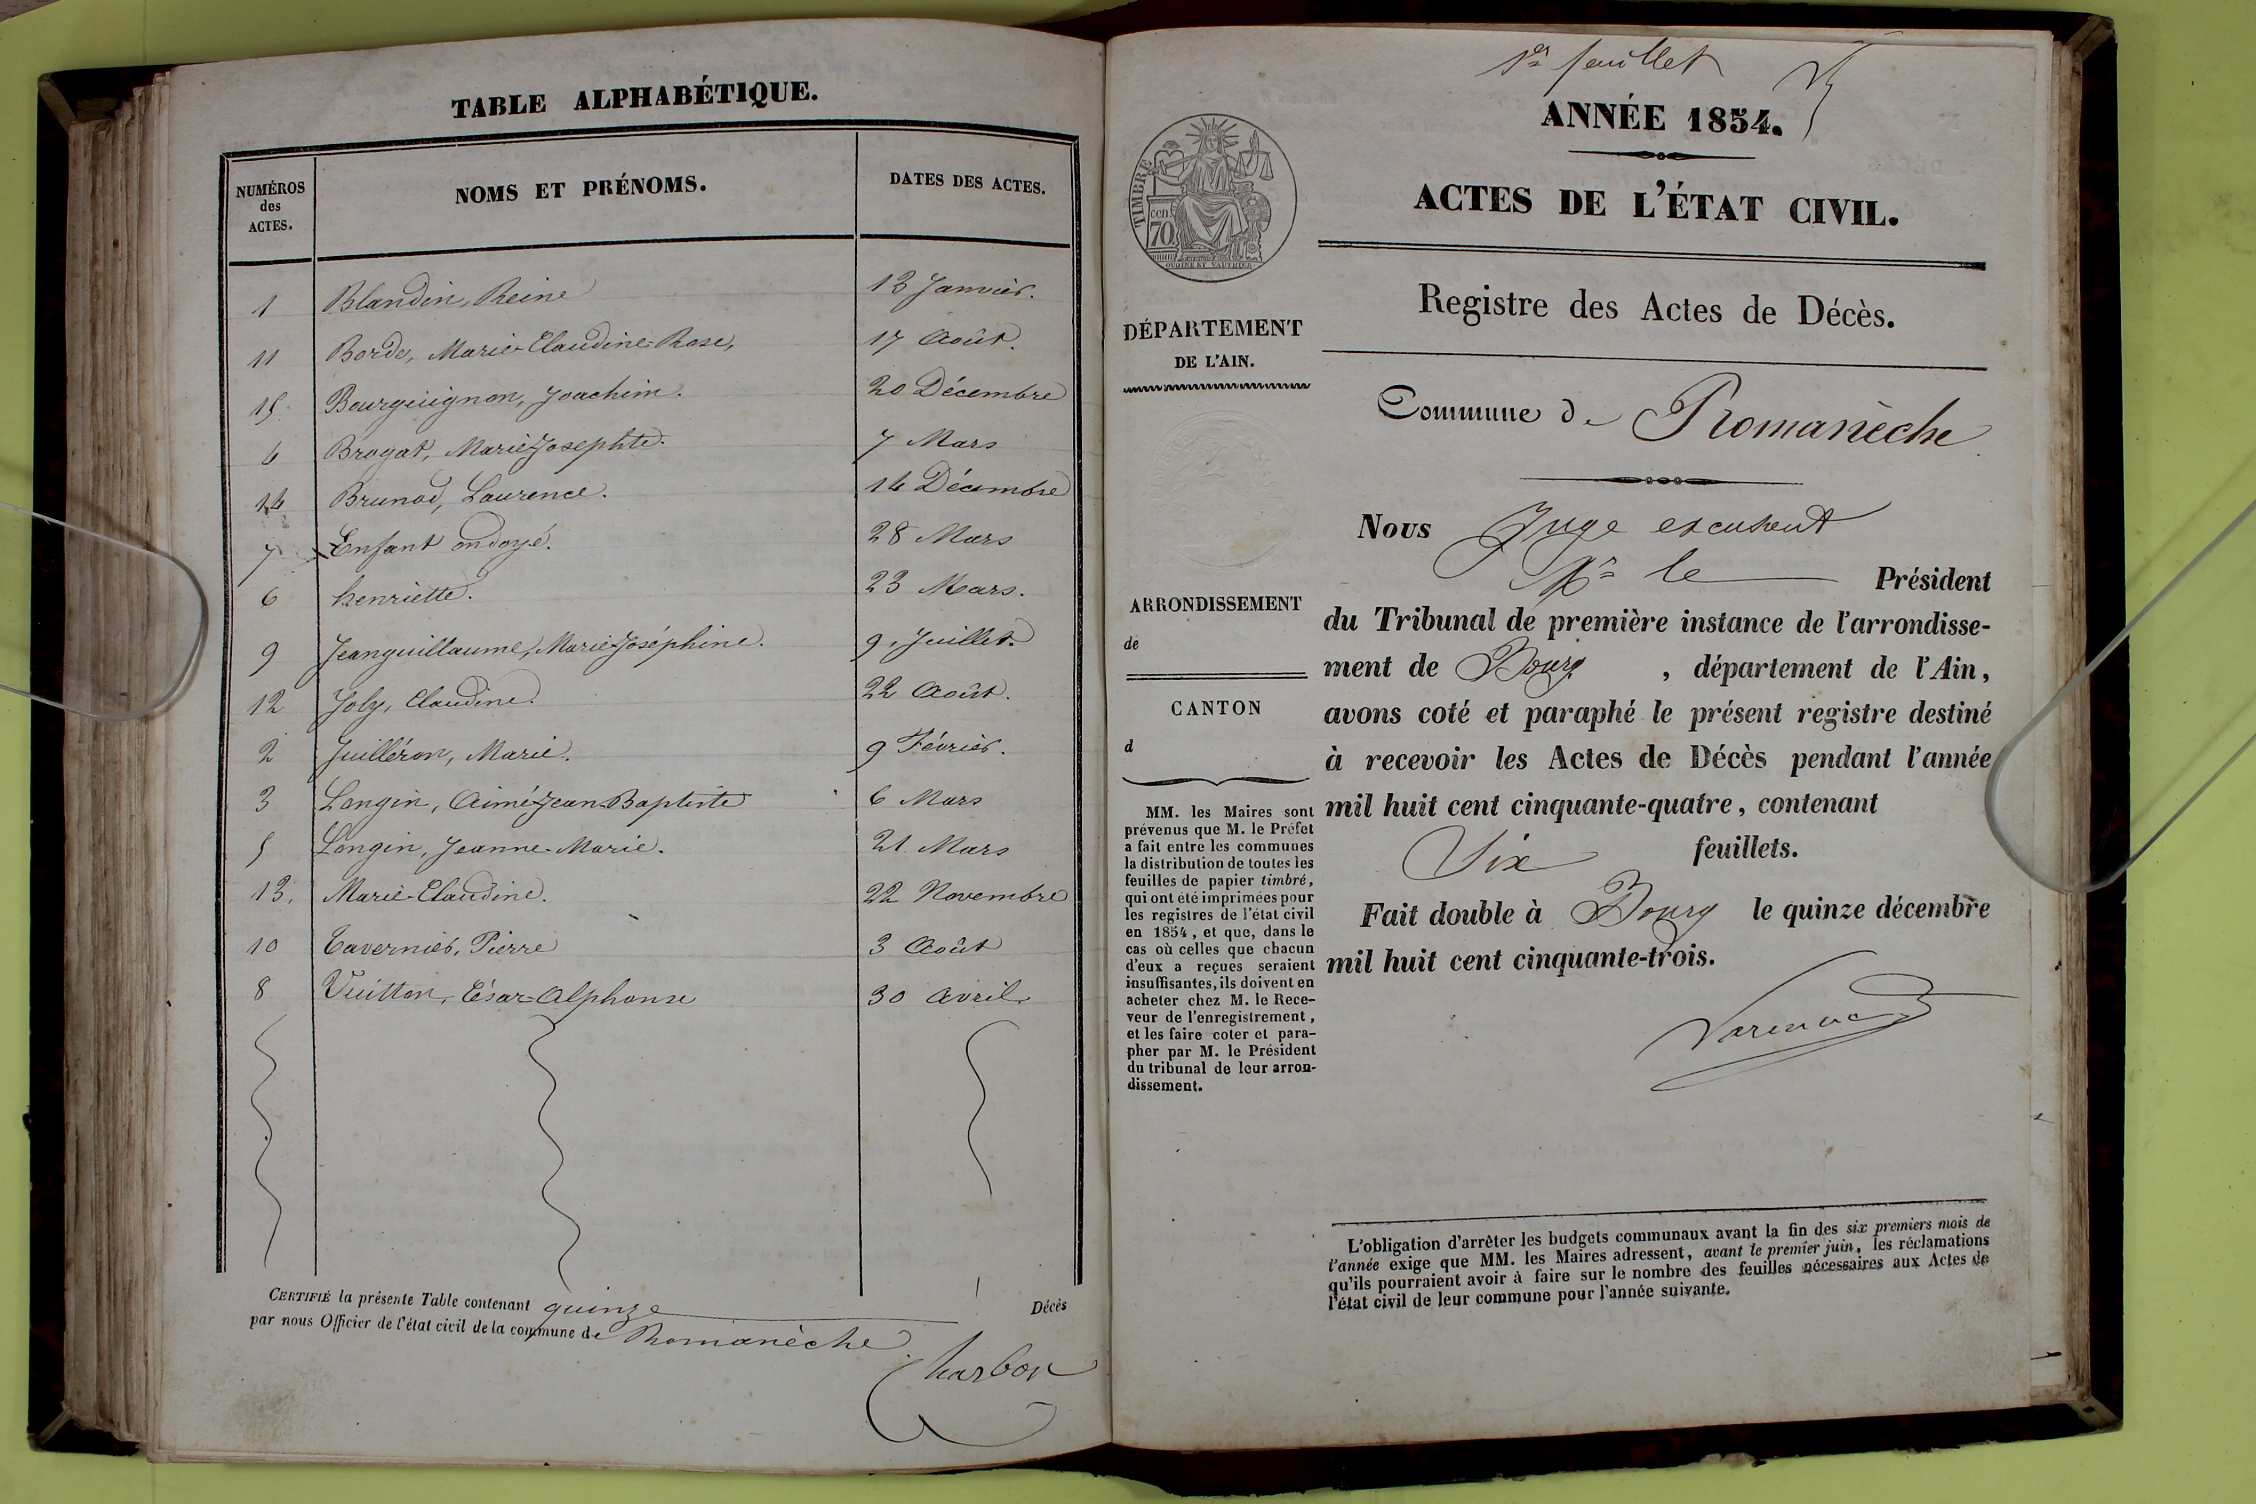 TABLE ALPHABÉTIQUE.
NUMÉROS des ACTES. NOMS ET PRÉNOMS. DATES DES ACTES.
1 Blandin, Reine 13 Janvier.
11 Borde, Marie-Claudine-Rose, 17 Août.
15 Bourguignon, Joachim. 20 Décembre
4 Brogat, Marie-Josephte. 7 Mars
14 Brunod, Laurence. 14 Décembre
7 Enfant ondoyé. 28 Mars
6 henriette. 23 Mars.
9 Jeanguillaume, Marie-Joséphine. 9 Juillet.
12 Joly, Claudine. 22 Août.
2 Juilléron, Marie. 9 Février.
3 Longin, Aimé-Jean-Baptiste 6 Mars
5 Longin, Jeanne-Marie. 21 Mars
13. Marie-Claudine. 22 Novembre
10 Tavernier, Pierre 3 Août
8 Vuitton, César-Alphonse 30 Avril.
CERTIFIÉ la présente Table contenant quinze Décès
par nous Officier de l'état civil de la commune de Romanèche
Charbon
1er feuillet
ANNÉE 1854.
ACTES DE L'ÉTAT CIVIL.
TIMBRE
cen.
70
OUDINE ET VAUTHIER
Registre des Actes de Décès.
DÉPARTEMENT
DE L'AIN.
Commune de Romanèche
ARRONDISSEMENT
de
CANTON
d
MM. les Maires sont
prévenus que M. le Préfet
a fait entre les communes
la distribution de toutes les
feuilles de papier timbré,
qui ont été imprimées pour
les registres de l'état civil
en 1854, et que, dans le
cas où celles que chacun
d'eux a reçues seraient
insuffisantes, ils doivent en
acheter chez M. le Rece-
veur de l'enregistrement,
et les faire coter et para-
pher par M. le Président
du tribunal de leur arron-
dissement.
Nous Juge excusant
Mr le Président
du Tribunal de première instance de l'arrondisse-
ment de Bourg, département de l'Ain,
avons coté et paraphé le présent registre destiné
à recevoir les Actes de Décès pendant l'année
mil huit cent cinquante-quatre, contenant
Six feuillets.
Fait double à Bourg le quinze décembre
mil huit cent cinquante-trois.
L'obligation d'arrêter les budgets communaux avant la fin des six premiers mois de
l'année exige que MM. les Maires adressent, avant le premier juin, les réclamations
qu'ils pourraient avoir à faire sur le nombre des feuilles nécessaires aux Actes de
l'état civil de leur commune pour l'année suivante.